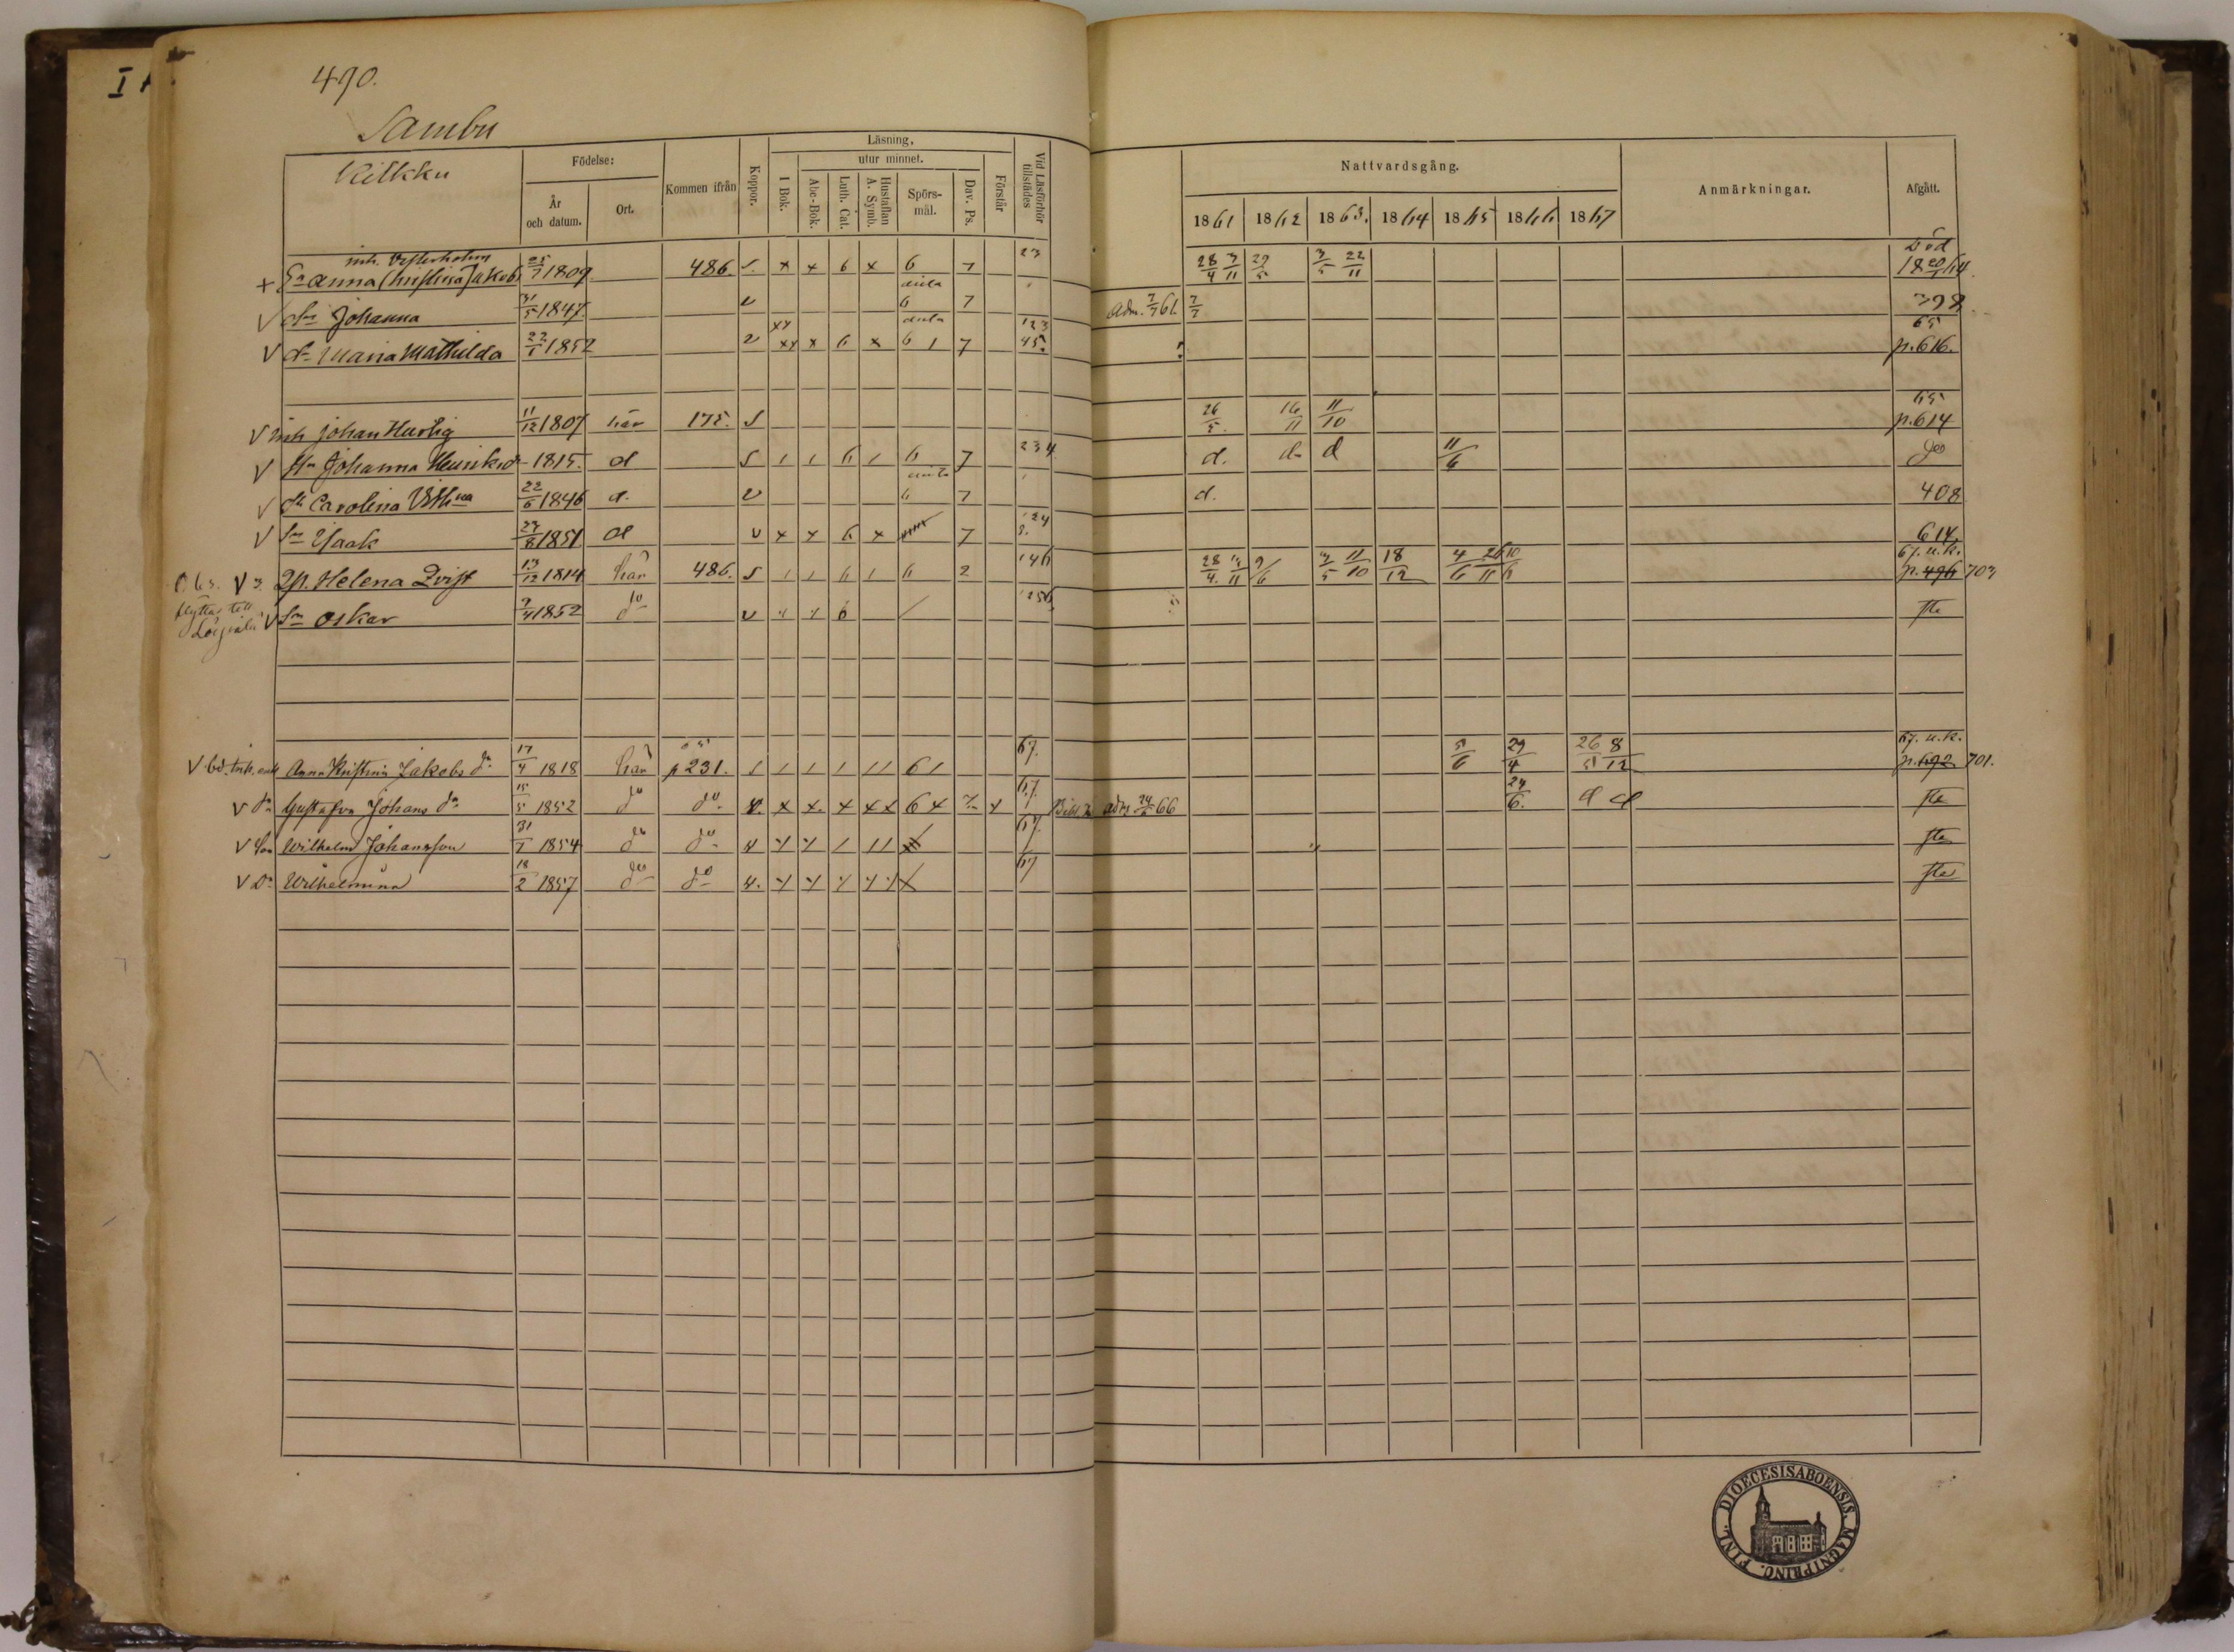 490.
Sambu
Kilkku
Födelse:
År och datum.
Ort.
Kommen ifrån
Koppor.
Läsning,
I Bok.
utur minnet.
Abc-Bok.
Luth. Cat.
Hustaflan A. Symb.
Spörs-mål.
Dav. Ps.
Förstår
Vid Läsförhör tillstädes
Nattvardsgång.
1861 1862 1863. 1864 1865 1866 1867
Anmärkningar.
Afgått.
inh. Vesterholm
+ Ea Anna Christina Jakobs 25/7 1809 486. s. x x 6 x 6 7 23 28/4 3/11 29/5 3/5 22/11 Död 18 20/1 64.
V dr Johanna 31/5 1847 v 6 7 Adm. 7/7 61. 7/7 398
V dr Maria Mathilda 22/1 1852 v xx x 6 x 6 1 7 123 45. 65 p. 616.
V inh Johan Hurtig 11/12 1807 här 175. s 26/5. 16/11 11/10 65 p. 614
V Hu Johanna Henriksdr 1815. d s 1 1 6 1 6 7 234 d. do d 11/6 do
V dr Carolina Vilhna 22/6 1846 d. v 6 7 d. 408
V Sn Isaak 27/8 1851 d v x x 6 x 7 24 614.
Obs. V Qp. Helena Qvist 13/12 1814 här 486. s 1 1 6 1 6 2 146 28/4. 3/11 9/6 3/5 11/10 18/12 4/6 26/11 10/6 67. u.k. p. 496 703
flyttat till
V Sn Oskar 9/4 1852 do v 6 256
V bd. inh. enk Anna Kristina Jakobs dr 17/4 1818 här p 231. s 1 1 1 11 61 67. 5/6 29/4 26/5 8/12 67. u.k. p. 692 701.
V dr Gustafva Johans dr 15/5 1852 do do v. x x x xx 6 x 67. adm 24/6 66 24/6. d d
V Son Wilhelm Johansson 31/1 1854 do do v 67
V Dr Wilhelmina 18/2 1857 do do v. 67
DIOECESIS ABOENSIS. MAGNI PRINC. FINL.